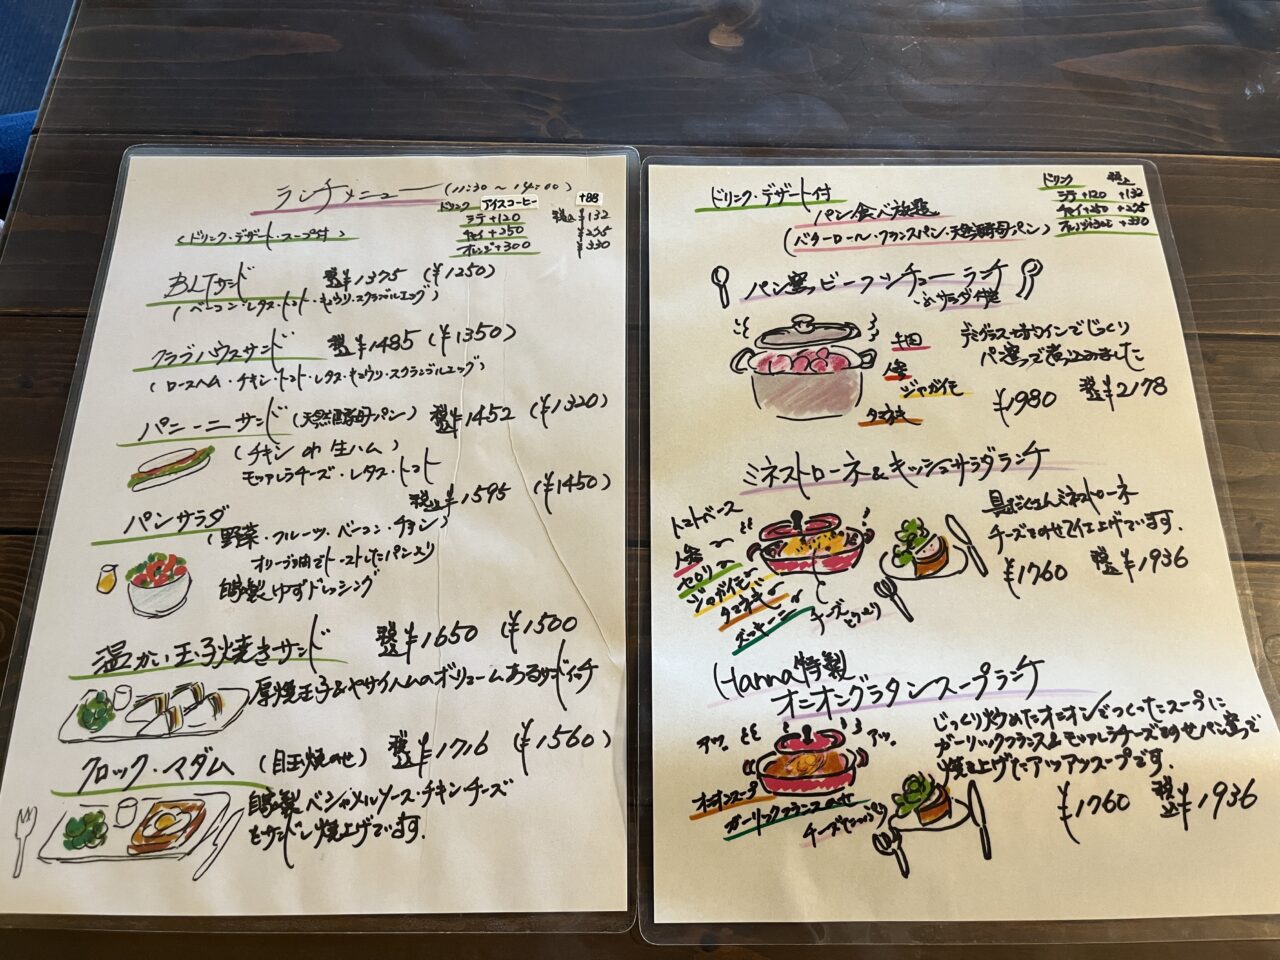 ランチメニュー (11:30～14:00)
ドリンク アイスコーヒー +88
ラテ+120 税込¥132
チャイ+250 ¥275
オレンジ+300 ¥330
(ドリンク・デザート・スープ付)
BLTサンド 税込¥1375 (¥1250)
(ベーコン・レタス・トマト・キュウリ・スクランブルエッグ)
クラブハウスサンド 税込¥1485 (¥1350)
(ロースハム・チキン・トマト・レタス・キュウリ・スクランブルエッグ)
パニーニサンド (天然酵母パン) 税込¥1452 (¥1320)
(チキン or 生ハム)
モッツァレラチーズ・レタス・トマト
パンサラダ 税込¥1595 (¥1450)
(野菜・フルーツ・ベーコン・チキン)
オリーブ油でトーストしたパン入り
自家製ゆずドレッシング
温かい玉子焼きサンド 税込¥1650 (¥1500
厚焼玉子&ヤサイハムのボリュームあるサンドイッチ
クロック・マダム (目玉焼のせ) 税込¥1716 (¥1560)
自家製ベシャメルソース・チキン・チーズ
をサンドし焼上げています.
ドリンク・デザート付
ドリンク 税込
ラテ +120 +132
チャイ+250 +275
オレンジ+300 +330
パン食べ放題
(バターロール・フランスパン・天然酵母パン)
パン窯ビーフシチューランチ
サラダ付き
牛肉
人参
ジャガイモ
タマネギ
デミグラスと赤ワインでじっくり
パン窯で煮込みました
¥1980 税込¥2178
ミネストローネ&キッシュサラダランチ
トマトベース
人参
セロリ
ジャガイモ
タマネギ
ズッキーニ
チーズとろ〜り
具だくさんミネストローネ
チーズをのせて仕上げています.
¥1760 税込¥1936
Hanna特製
オニオングラタンスープランチ
アツ アツ
オニオンスープ
ガーリックフランスのせ
チーズたっぷり
じっくり炒めたオニオンでつくったスープに
ガーリックフランス&モッツァレラチーズをのせパン窯で
焼き上げたアツアツスープです.
¥1760 税込¥1936